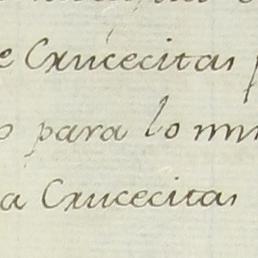 e Crucecitas
o para lo mu
a Crucecitas